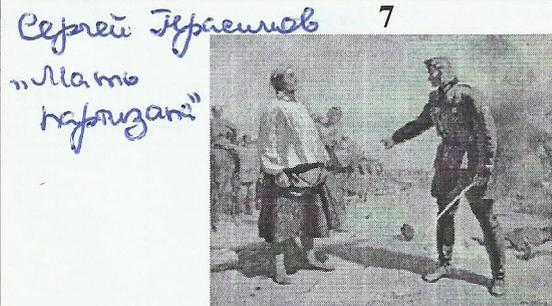 Сергей Герасимов
7
„Мать
партизана"